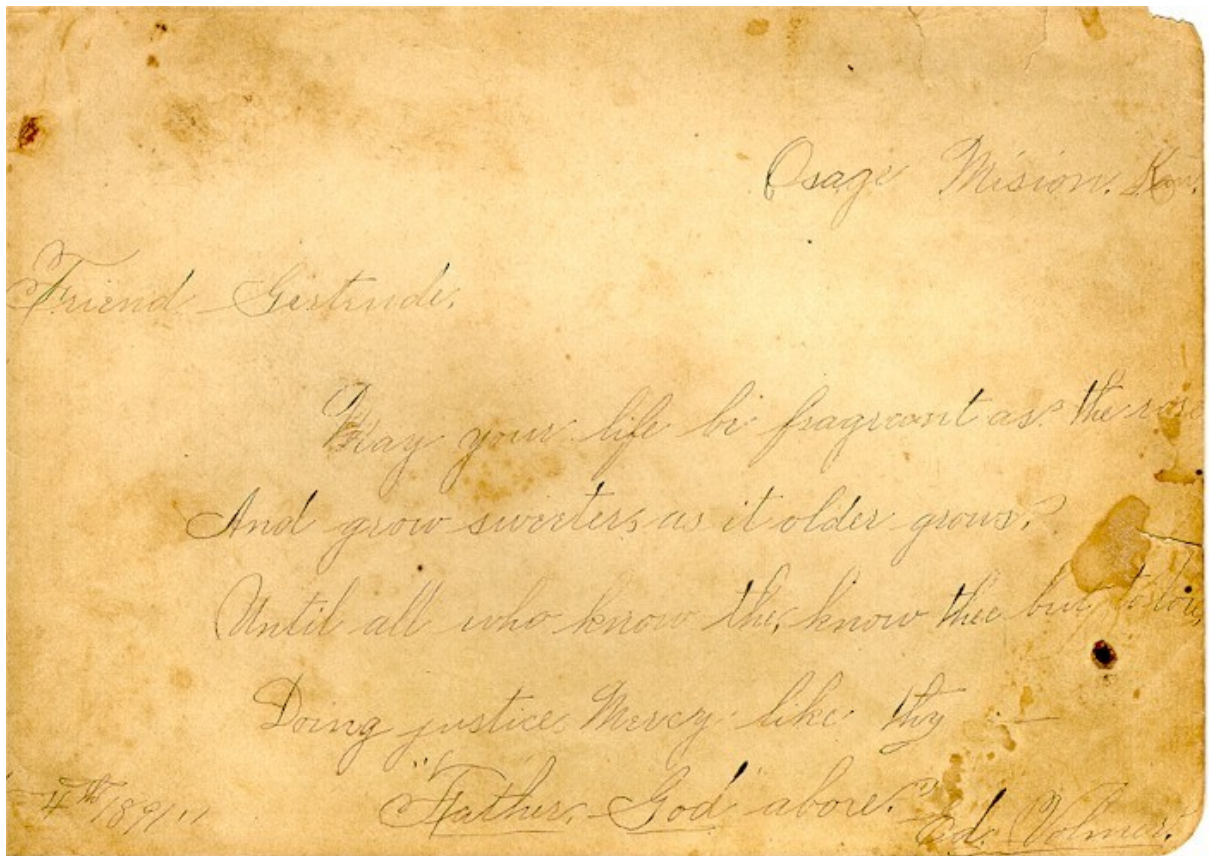 Osage Mision. Kan.
Friend Gertrude.
May your life be fragreant as the rose
And grow sweeter, as it older grows.
Until all who know the, know thee but to love,
Doing justice, Mercy like thy
"Father, God" above."
4th/89 Ed. Volmer.